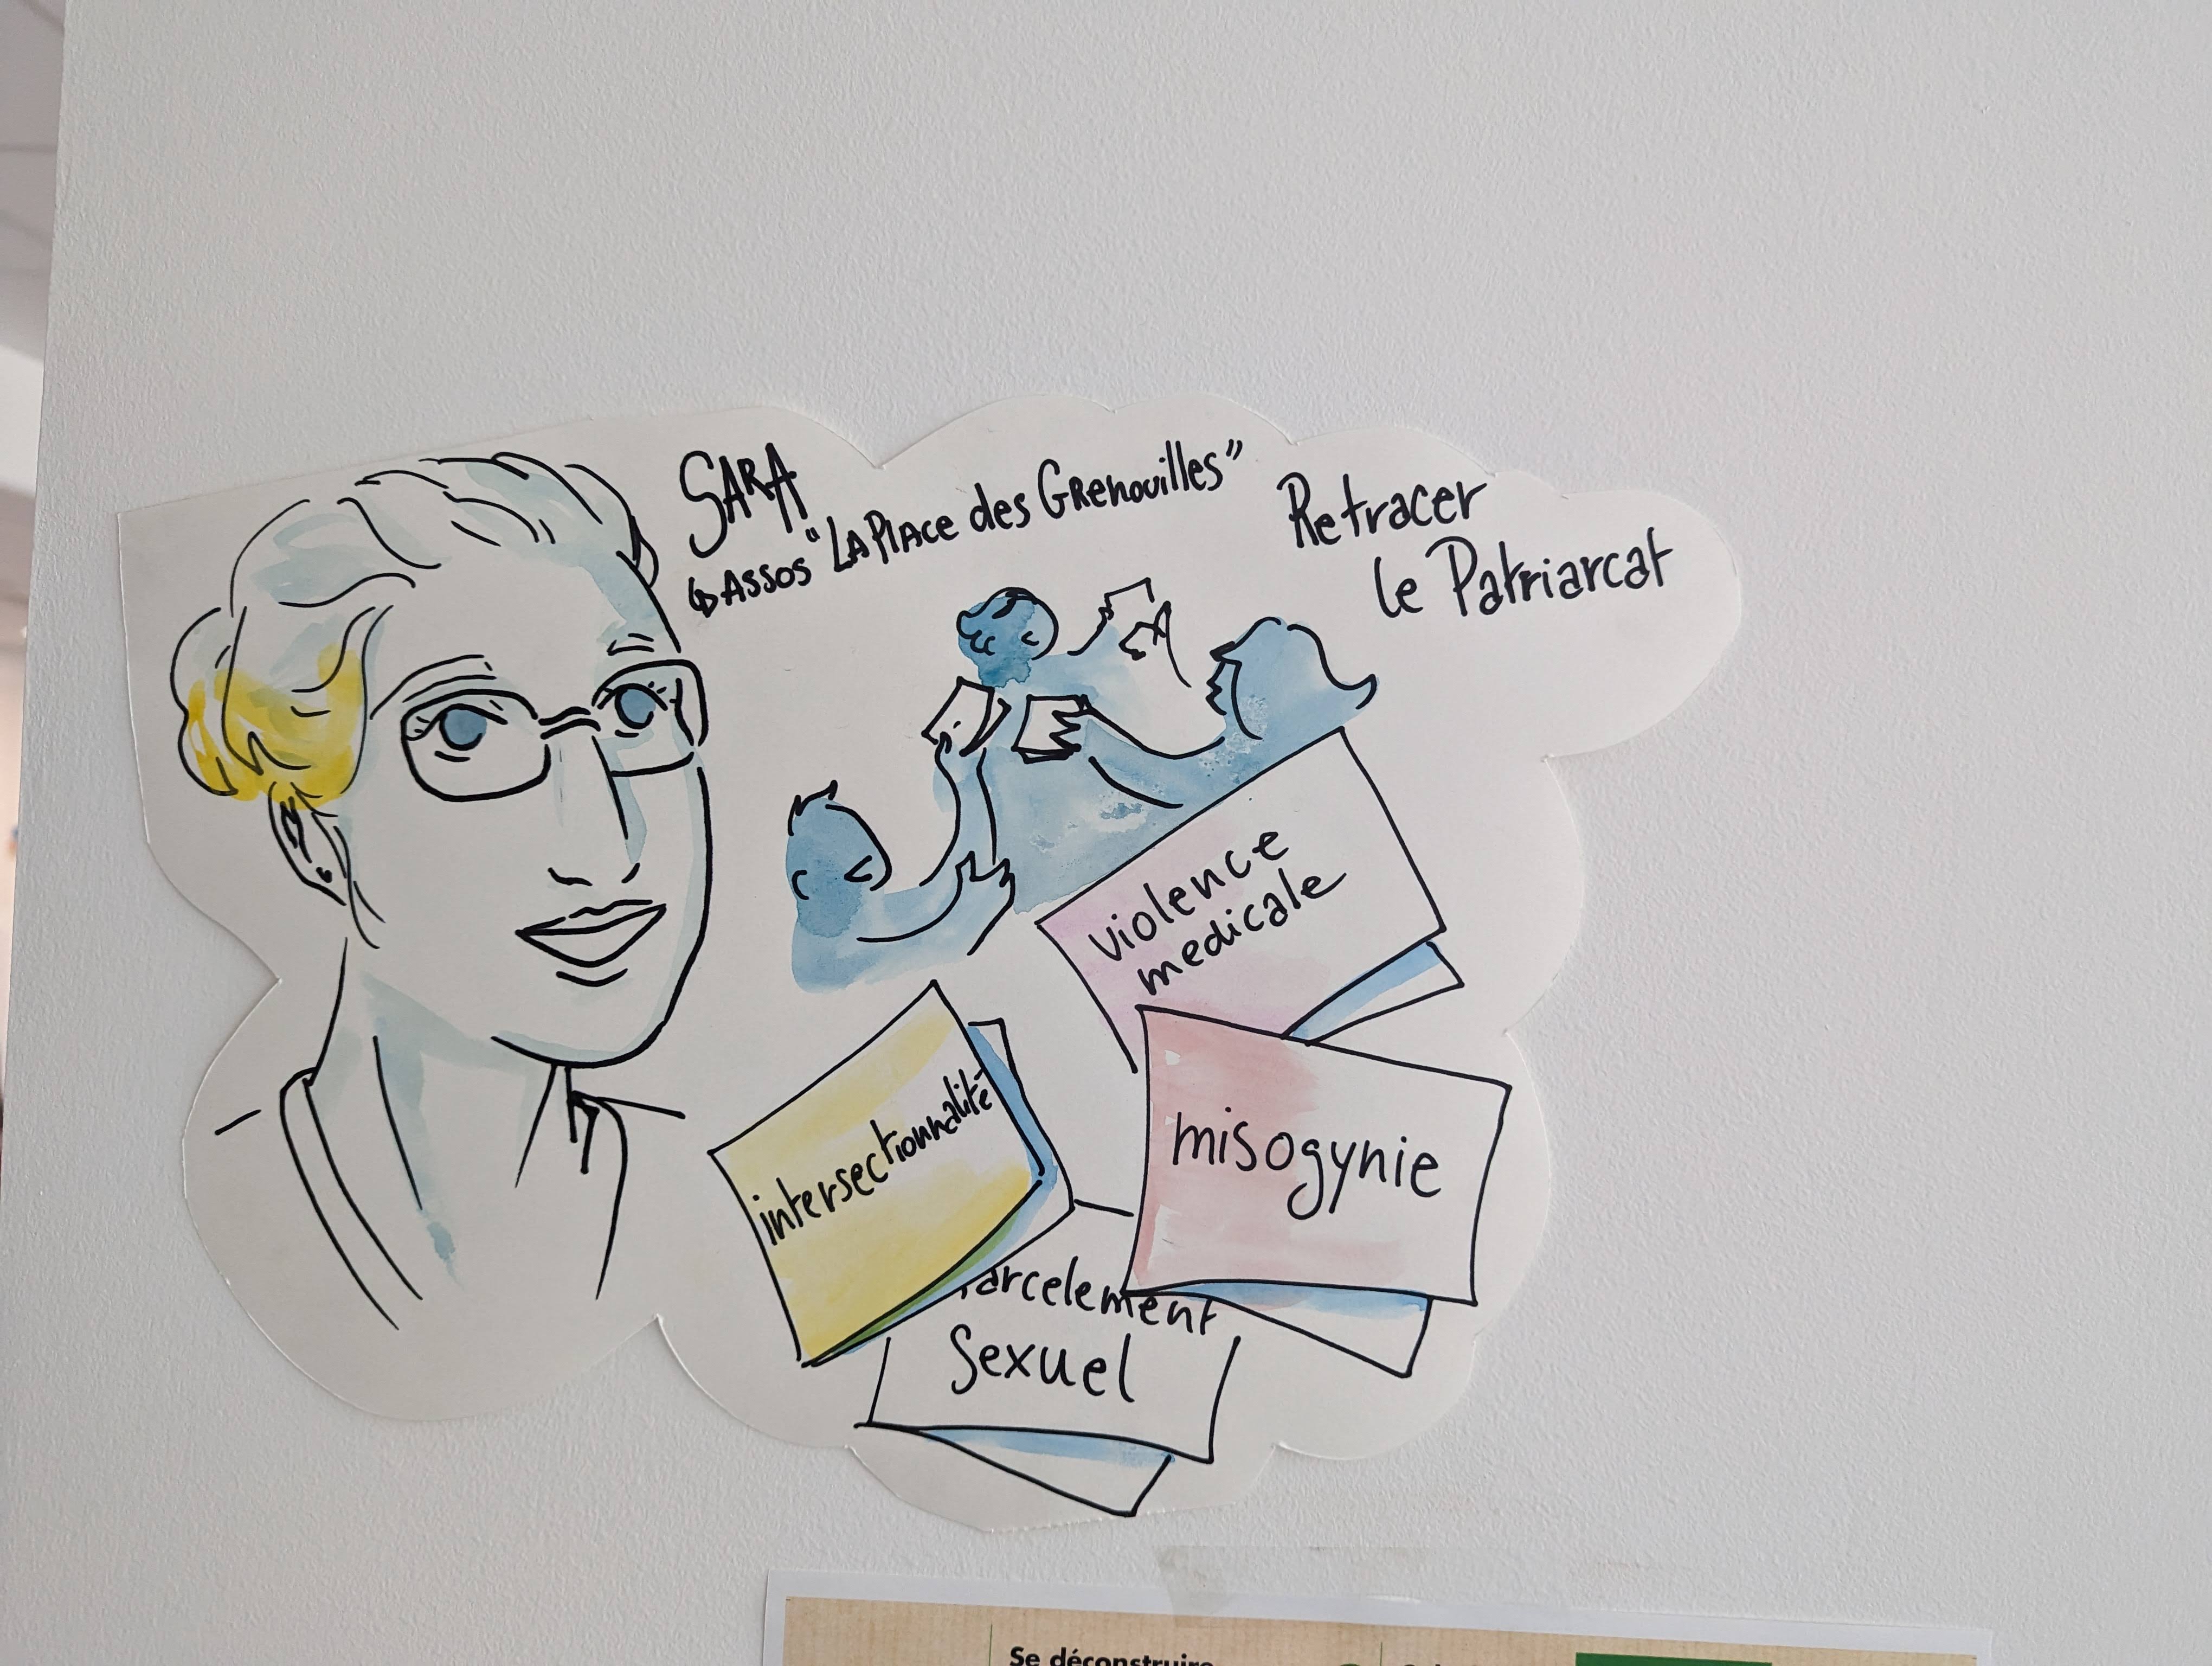 SARA
↳ Assos "La Place des Grenouilles"
Retracer
le Patriarcat
violence
medicale
intersectionnalité
misogynie
arcelement
Sexuel
Se déconstruire